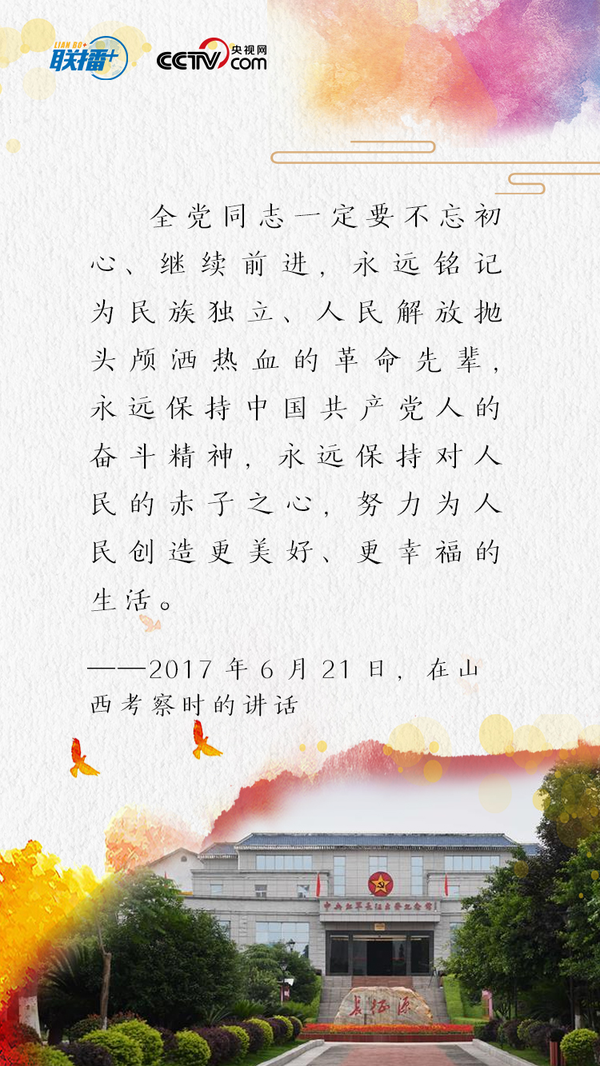 LIAN BO+
联播+
CCTV 央视网
com
全党同志一定要不忘初
心、继续前进，永远铭记
为民族独立、人民解放抛
头颅洒热血的革命先辈，
永远保持中国共产党人的
奋斗精神，永远保持对人
民的赤子之心，努力为人
民创造更美好、更幸福的
生活。
——2017 年 6 月 21 日，在山
西考察时的讲话
中央红军长征出发纪念馆
长征源